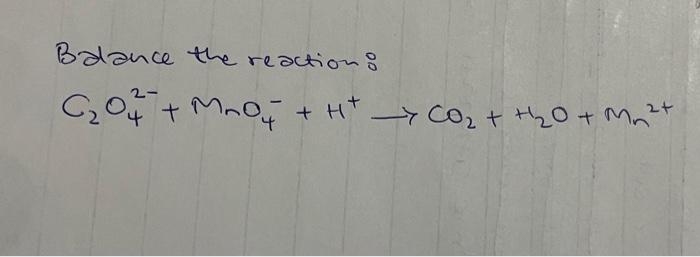 Balance the reaction:
C₂O₄²⁻ + MnO₄⁻ + H⁺ → CO₂ + H₂O + Mn²⁺